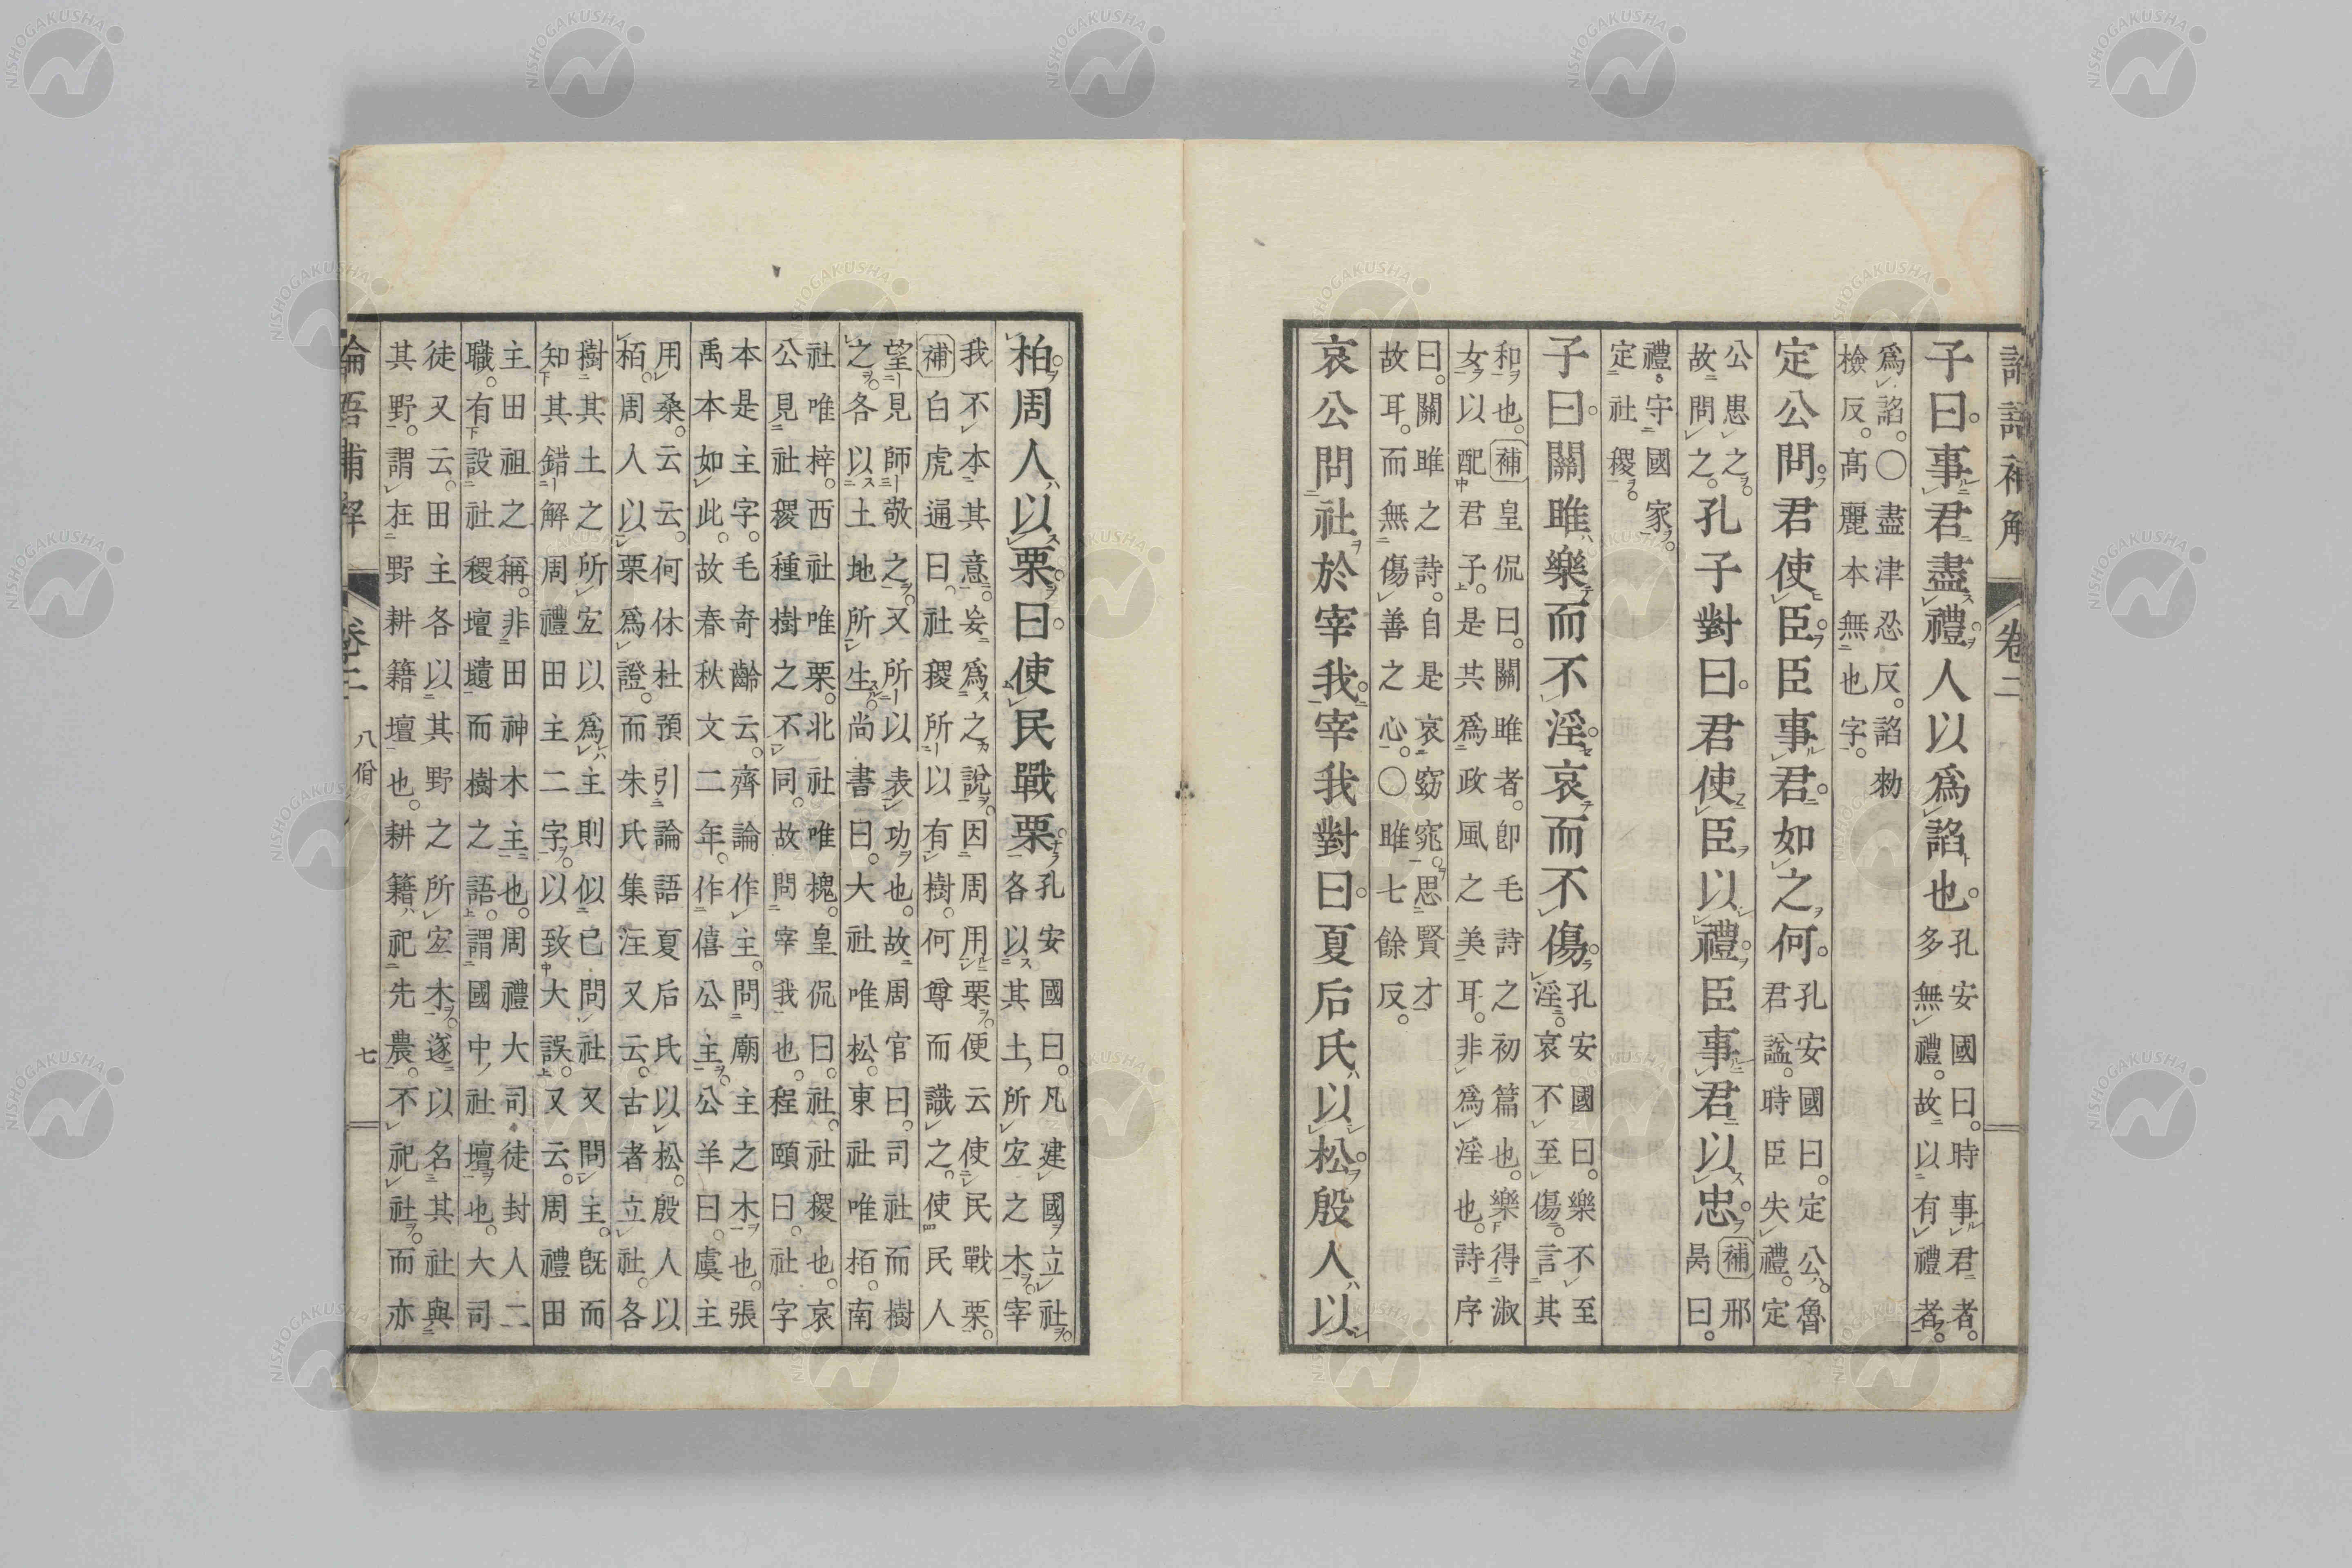 論語補解 卷二
子曰。事君盡禮人以爲諂也。
孔安國曰。時事君者。
多無禮。故以有禮者。
爲諂。〇盡津忍反。諂勑
檢反。髙麗本無也字。
定公問。君使臣。臣事君。如之何。
孔安國曰。定公。魯
君謚。時臣失禮。定
公患之。
故問之。
孔子對曰。君使臣以禮。臣事君以忠。
補邢
昺曰。
禮。守國家。
定社稷。
子曰。關雎樂而不淫。哀而不傷。
孔安國曰。樂不至
淫。哀不至傷。言其
和也。補皇侃曰。關雎者。卽毛詩之初篇也。樂得淑
女以配君子。是共爲政風之美耳。非爲淫也。詩序
曰。關雎之詩。自是哀窈窕。思賢才
故耳。而無傷善之心。〇雎七餘反。
哀公問社於宰我。宰我對曰。夏后氏以松。殷人以
柏。周人以栗。曰。使民戰栗。
孔安國曰。凡建國立社。
各以其土所宐之木。宰
我不本其意。妄爲之說。因周用栗。便云使民戰栗。
補白虎通曰。社稷所以有樹。何尊而識之。使民人
望見師敬之。又所以表功也。故周官曰。司社而樹
之。各以土地所生。尚書曰。大社唯松。東社唯栢。南
社唯梓。西社唯栗。北社唯槐。皇侃曰。社。社稷也。哀
公見社稷種樹之不同。故問宰我也。程頤曰。社字
本是主字。毛奇齡云。齊論作主。問廟主之木也。張
禹本如此。故春秋文二年。作僖公主。公羊曰。虞主
用桑。云云。何休杜預引論語夏后氏以松。殷人以
栢。周人以栗爲證。而朱氏集注又云。古者立社。各
樹其土之所宐以爲主則似已問社又問主。旣而
知其錯解周禮田主二字。以致大誤。又云。周禮田
主田祖之稱。非田神木主也。周禮大司徒封人二
職。有設社稷壇壝而樹之語。謂國中社壇也。大司
徒又云。田主各以其野之所宐木。遂以名其社與
其野。謂在野耕籍壇也。耕籍祀先農。不祀社。而亦
論語補解 卷二 八佾 七